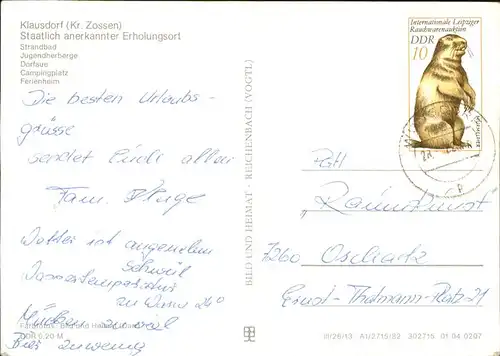 Klausdorf (Kr. Zossen)
Staatlich anerkannter Erholungsort
Strandbad
Jugendherberge
Dorfaue
Campingplatz
Ferienheim
Die besten Urlaubs-
grüsse
sendet Euch allen
Fam.
Wetter ist angenehm
schwül
Wassertemperatur
24°
Mücken zu viel
Bier zuwenig
BILD UND HEIMAT · REICHENBACH (VOGTL)
Internationale Leipziger
Rauchwarenauktion
DDR
10
PGH
"Raumkunst"
7260 Oschatz
Ernst-Thälmann-Platz 21
DDR 0,20 M
III/26/13 A1/2715/82 302715 01 04 0207